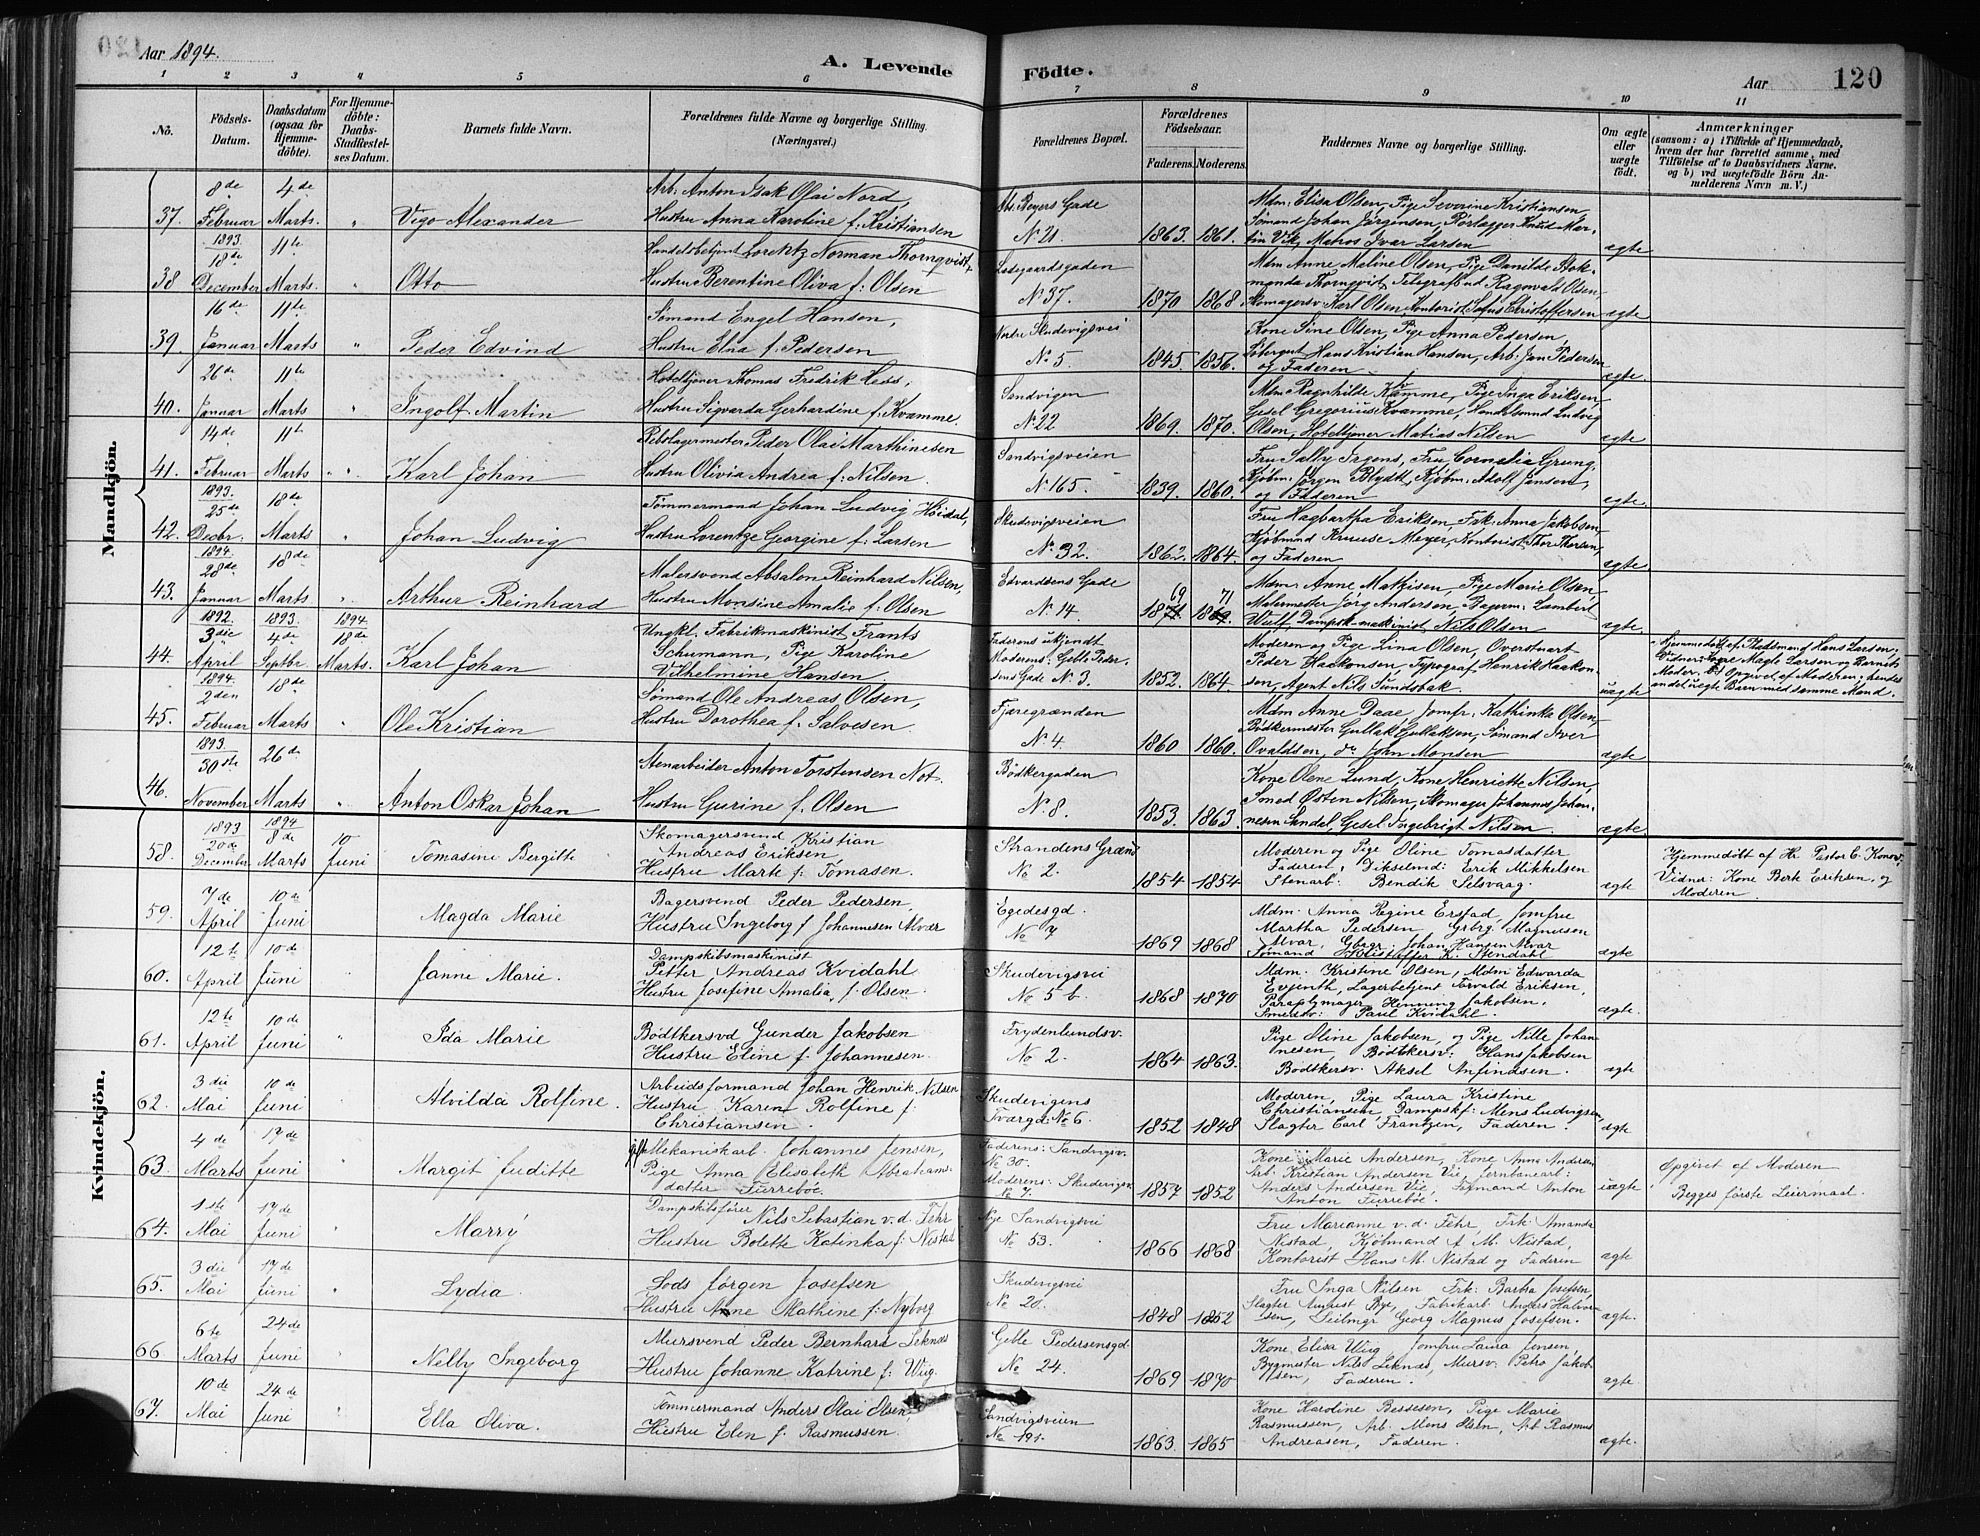 Aar 1894.
A. Levende Födte.
Aar
120
1 2 3 4 5 6 7 8 9 10 11
No.
Födsels-Datum.
Daabsdatum (ogsaa for Hjemme-döbte).
For Hjemme-döbte: Daabs-Stadfæstel-ses Datum.
Barnets fulde Navn.
Forældrenes fulde Navne og borgerlige Stilling. (Næringsvei.)
Forældrenes Bopæl.
Forældrenes Födselsaar.
Faderens. Moderens.
Faddernes Navne og borgerlige Stilling.
Om ægte eller uægte födt.
Anmærkninger
(saasom: a) i Tilfælde af Hjemmedaab, hvem der har forrettet samme, med Tilföielse af to Daabsvidners Navne, og b) ved uægtefödte Börn An-melderens Navn m. V.)
Mandkjön.
37. 8de Februar 4de Marts. " Vigo Alexander
Arb: Anton Isak Olai Nord,
Hustru Anna Karoline f: Kristiansen
Beyers Gade
No 21. 1863. 1861.
Mdm: Elisa Olsen, Pige Severine Kristiansen
Sømand Johan Jørgensen, Knud Mar-
tin Vik, Matros Ivar Larsen ægte
38 1893 18de December 11te Marts. " Otto
Handelsbetjent Lorentz Norman Thornqvist,
Hustru Berentine Oliva f: Olsen
Ladegaardsgaden
No 37. 1870 1868
Mdm Anne Maline Olsen, Pige Danilde
Thornqvist, Telegrafbud Ragnvald Olsen,
Skomagersv: Karl Olsen, Kontorist Sofus Kristoffersen ægte
39. 16de Januar 11te Marts " Peder Edvind
Sømand Engel Hansen,
Hustru Elna f. Pedersen
Nordre Skudevigsvei
No 5 1845 1856.
Kone Sine Olsen, Pige Anna Pedersen,
Hans Kristian Hansen, Arb: Jan Pedersen
og Faderen ægte.
40. 26de Januar 11te Marts " Ingolf Martin
Hoteltjener Thomas Fredrik Hess,
Hustru Sigvarda Gerhardine f: Kvamme.
Sandvigen
No 22 1869. 1870.
Mdm Ragnhilde Kvamme, Pige Inga Eriksen,
Gesel Gregorius Kvamme, Handelsmand Ludvig
Olsen, Hoteltjener Matias Nilsen ægte
41. 14de Februar 11te Marts " " Karl Johan
Rebslagermester Peder Olai Marthinesen
Hustru Olivia Andrea f: Nilsen.
Sandvigsveien
No 165. 1839. 1860.
Fru Sally Irgens, Fru Cornelia Grung,
Kjøbm: Jørgen Blydt, Kjøbm: Adolf Jansen,
og Faderen ægte
42. 1893. 25de Decbr. 18de Marts " Johan Ludvig
Tømmermand Johan Ludvig Høidal,
Hustru Lorentze Georgine f: Larsen
Skudevigsveien
No 32. 1862. 1864.
Fru Hagbartha Eriksen, Frk: Anna Jakobsen,
Kjøbmand Kruuse Meyer, Kontorist Thor Thorsen,
og Faderen ægte
43. 1894. 28de Januar 18de Marts " Arthur Reinhard
Malersvend Absalon Reinhard Nilsen,
Hustru Monsine Amalie f: Olsen
Edvardsens Gade
No 14. 69 71
Mdm: Anne Mathisen, Pige Marie Olsen,
Malermester Jørg Andersen, Lambert
Wulf, Dampsk.maskinist Nils Olsen ægte
44. 1892. 3die April 1893. 4de Septbr 1894 18de Marts. Karl Johan
Ungkl. Fabrikmaskinist Frants
Schumann, Pige Karoline
Vilhelmine Hansen.
Faderens ukjendt
Moderens: Gelle Peder-
sens Gade No 3. 1852. 1864.
Moderen og Pige Lina Olsen, Overstuart
Peder Haakonsen, Typograf Henrik Haakon-
sen, Agent Nils Sundsbak. uægte
Hjemmedøbt af Hans Larsen.
Vidner: Magle Larsen og Barnets
Moder, b) Opgivet af Moderen: hendes
andet uægte Barn med samme Mand.
45. 1894. 2den Februar 18de Marts " Ole Kristian
Sømand Ole Andreas Olsen,
Hustru Dorothea f: Salvesen
Fjæregrænden
No 4. 1860 1860.
Mdm Anne Daae, Jomfr: Kathinka Olsen,
Bødkermester Gullak Gullaksen, Sømand Iver
Ovaldsen, do John Monsen ægte
46. 1893. 30ste November 26de Marts " Anton Oskar Johan
Stenarbeider Anton Torstensen Not.
Hustru Gurine f. Olsen
Bødkergaden
No 8. 1853. 1863.
Kone Olene Lund, Kone Henriette Nilsen,
Smed Østen Nilsen, Skomager Johannes Johan-
nesen Sandal, Gesel Ingebrigt Nilsen. ægte
Kvindekjön.
58. 1893 20de December 1894 8de Marts 10 Juni Tomasine Bergitte
Skomagersvend Kristian
Andreas Eriksen
Hustru Marte f: Tomasen.
Strandens Grænd
No 2. 1854 1854
Moderen og Pige Oline Tomasdatter
Faderen, Erik Mikkelsen
Stenarb: Bendik Selsvaag. ægte
Hjemmedøbt af Hr Pastor C. Konow.
Vidner: Kone Berte Eriksen, og
Moderen
59. 7de April 10de Juni " Magda Marie
Bagersvend Peder Pedersen,
Hustru Ingeborg f Johannesen Alvær
Egedesgd.
No 7 1869 1868
Mdm. Anna Regine Erstad, Jomfru
Martha Pedersen, Grbrg. Magnusen
Alvær, Gbrgr: Johan Hansen Alvær
Sømand Kristoffer K. Stendahl ægte
60. 12te April 10de Juni " Janne Marie.
Dampskibsmaskinist
Petter Andreas Kvidahl
Hustru Josefine Amalia, f. Olsen
Skudevigsvei
No 5b. 1868 1870
Mdm. Kristine Olsen, Mdm Edwarda
Evjenth, Lagerbetjent Arvald Eriksen,
Paraplymager Henning Jakobsen,
Smedsv: Paul Kvidahl. ægte.
61. 12te April 10de Juni " Ida Marie
Bødtkersvd Gunder Jakobsen
Hustru Eline f. Johannesen.
Frydenlundsv.
No 2. 1864 1863.
Pige Oline Jakobsen, og Pige Nille Johan
nesen, Bødtkersv: Hans Jakobsen
Bødtkersv. Aksel Anfindsen. ægte
62. 3die Mai 10de Juni Alvilda Rolfine.
Arbeidsformand Johan Henrik Nilsen
Hustru Karen Rolfine f:
Christiansen.
Skudevigens
Tværgd: No 6. 1852 1848
Moderen, Pige Laura Kristine
Christiansen, Dampskf: Mons Ludvigsen,
Slagter Carl Frantzen, Faderen. ægte
63. 4de Marts 17de Juni " Margit Juditte
gift Mekaniskarb. Johannes Jensen,
Pige Anna Elisabeth Abrahams-
datter Turrebøe.
Faderens: Sandvigsv.
No 30.
Moderens: Skudevigsv.
No 7. 1857 1852
Kone Marie Andersen, Kone Anna Andersen
Arb. Kristian Andersen Vie, Jernbanearb:
Anders Andersen Vie, Formand Anton
Anton Turrebøe. uægte
Opgivet af Moderen
Begges første Leiermaal.
64. 1ste Mai 17de Juni " Marry
Dampskibsfører
Nils Sebastian v. d. Fehr
Hustru Bolette Katinka f: Nistad
Nye Sandvigsvei
No 53. 1866 1868
Fru Marianne v. d. Fehr, Frk: Amanda
Nistad, Kjøbmand A. M. Nistad,
Kontorist Hans M. Nistad og Faderen ægte
65. 3die Mai 17de Juni " Lydia.
Lods Jørgen Josefsen
Hustru Anne Mathine f: Nyborg
Skudevigsvei
No 20. 1848 1852
Fru Inga Nilsen Frk: Barbra Josefsen,
Slagter August Bye, Fabrikarb: Anders Halvor-
sen, Seilmgr Georg Magnus Josefsen. ægte.
66 6te Marts 24de Juni " Nelby Ingeborg
Mursvend Peder Bernhard Leknæs
Hustru Johanne Katrine f: Wiig
Gelle Pedersensgd
No 24. 1869 1870
Kone Elisa Wiig Jomfru Laura Jensen,
Bygmester Nils Leknæs, Mursv: Petro Jakob-
sen, Faderen. ægte.
67. 10de Mai 24de Juni " Ella Oliva.
Tømmermand Anders Olai Olsen,
Hustru Elen f. Rasmussen.
Sandvigsveien
No 191. 1863. 1865
Kone Karoline Bessesen, Pige Marie
Rasmussen, Arb. Mons Olsen, Arb Rasmus
Andreasen, Faderen. ægte.